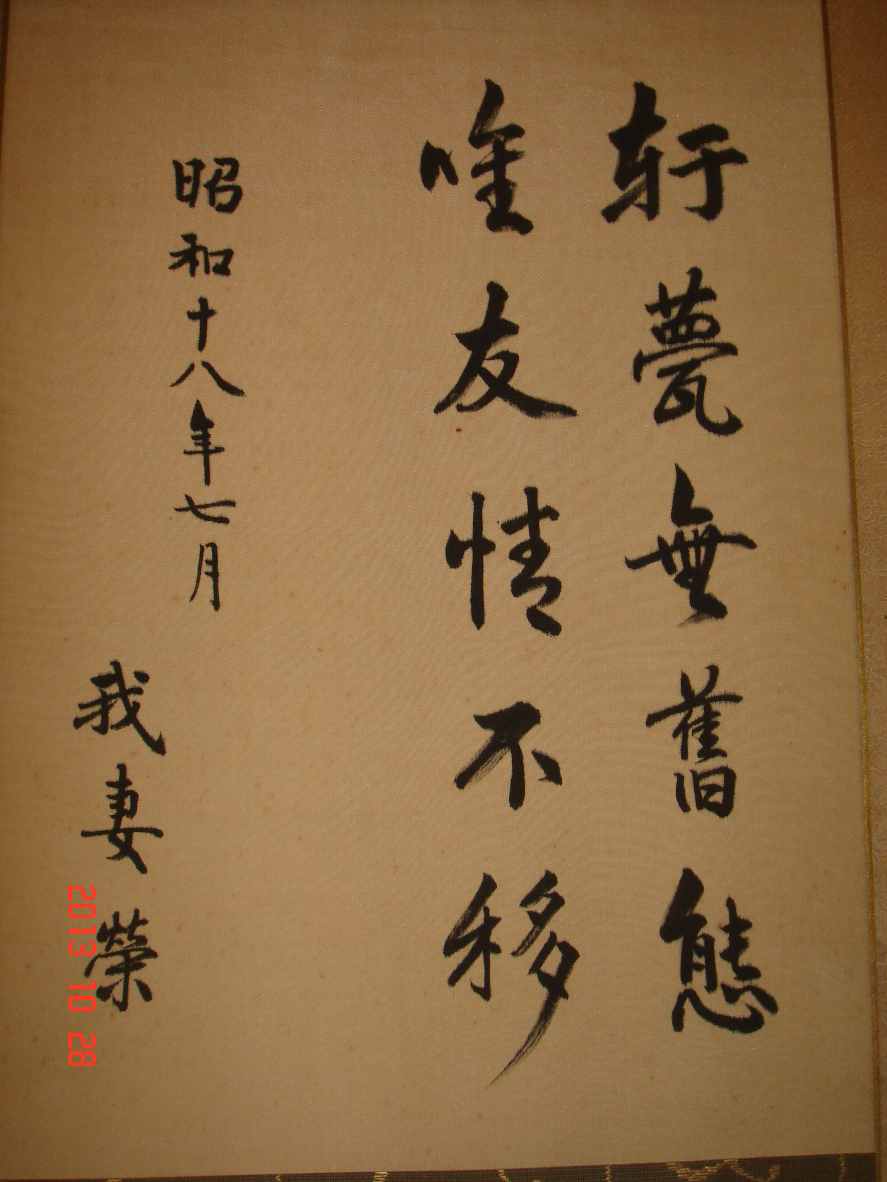 軒甍無舊態
唯友情不移
昭和十八年七月
我妻榮
2013 10 28